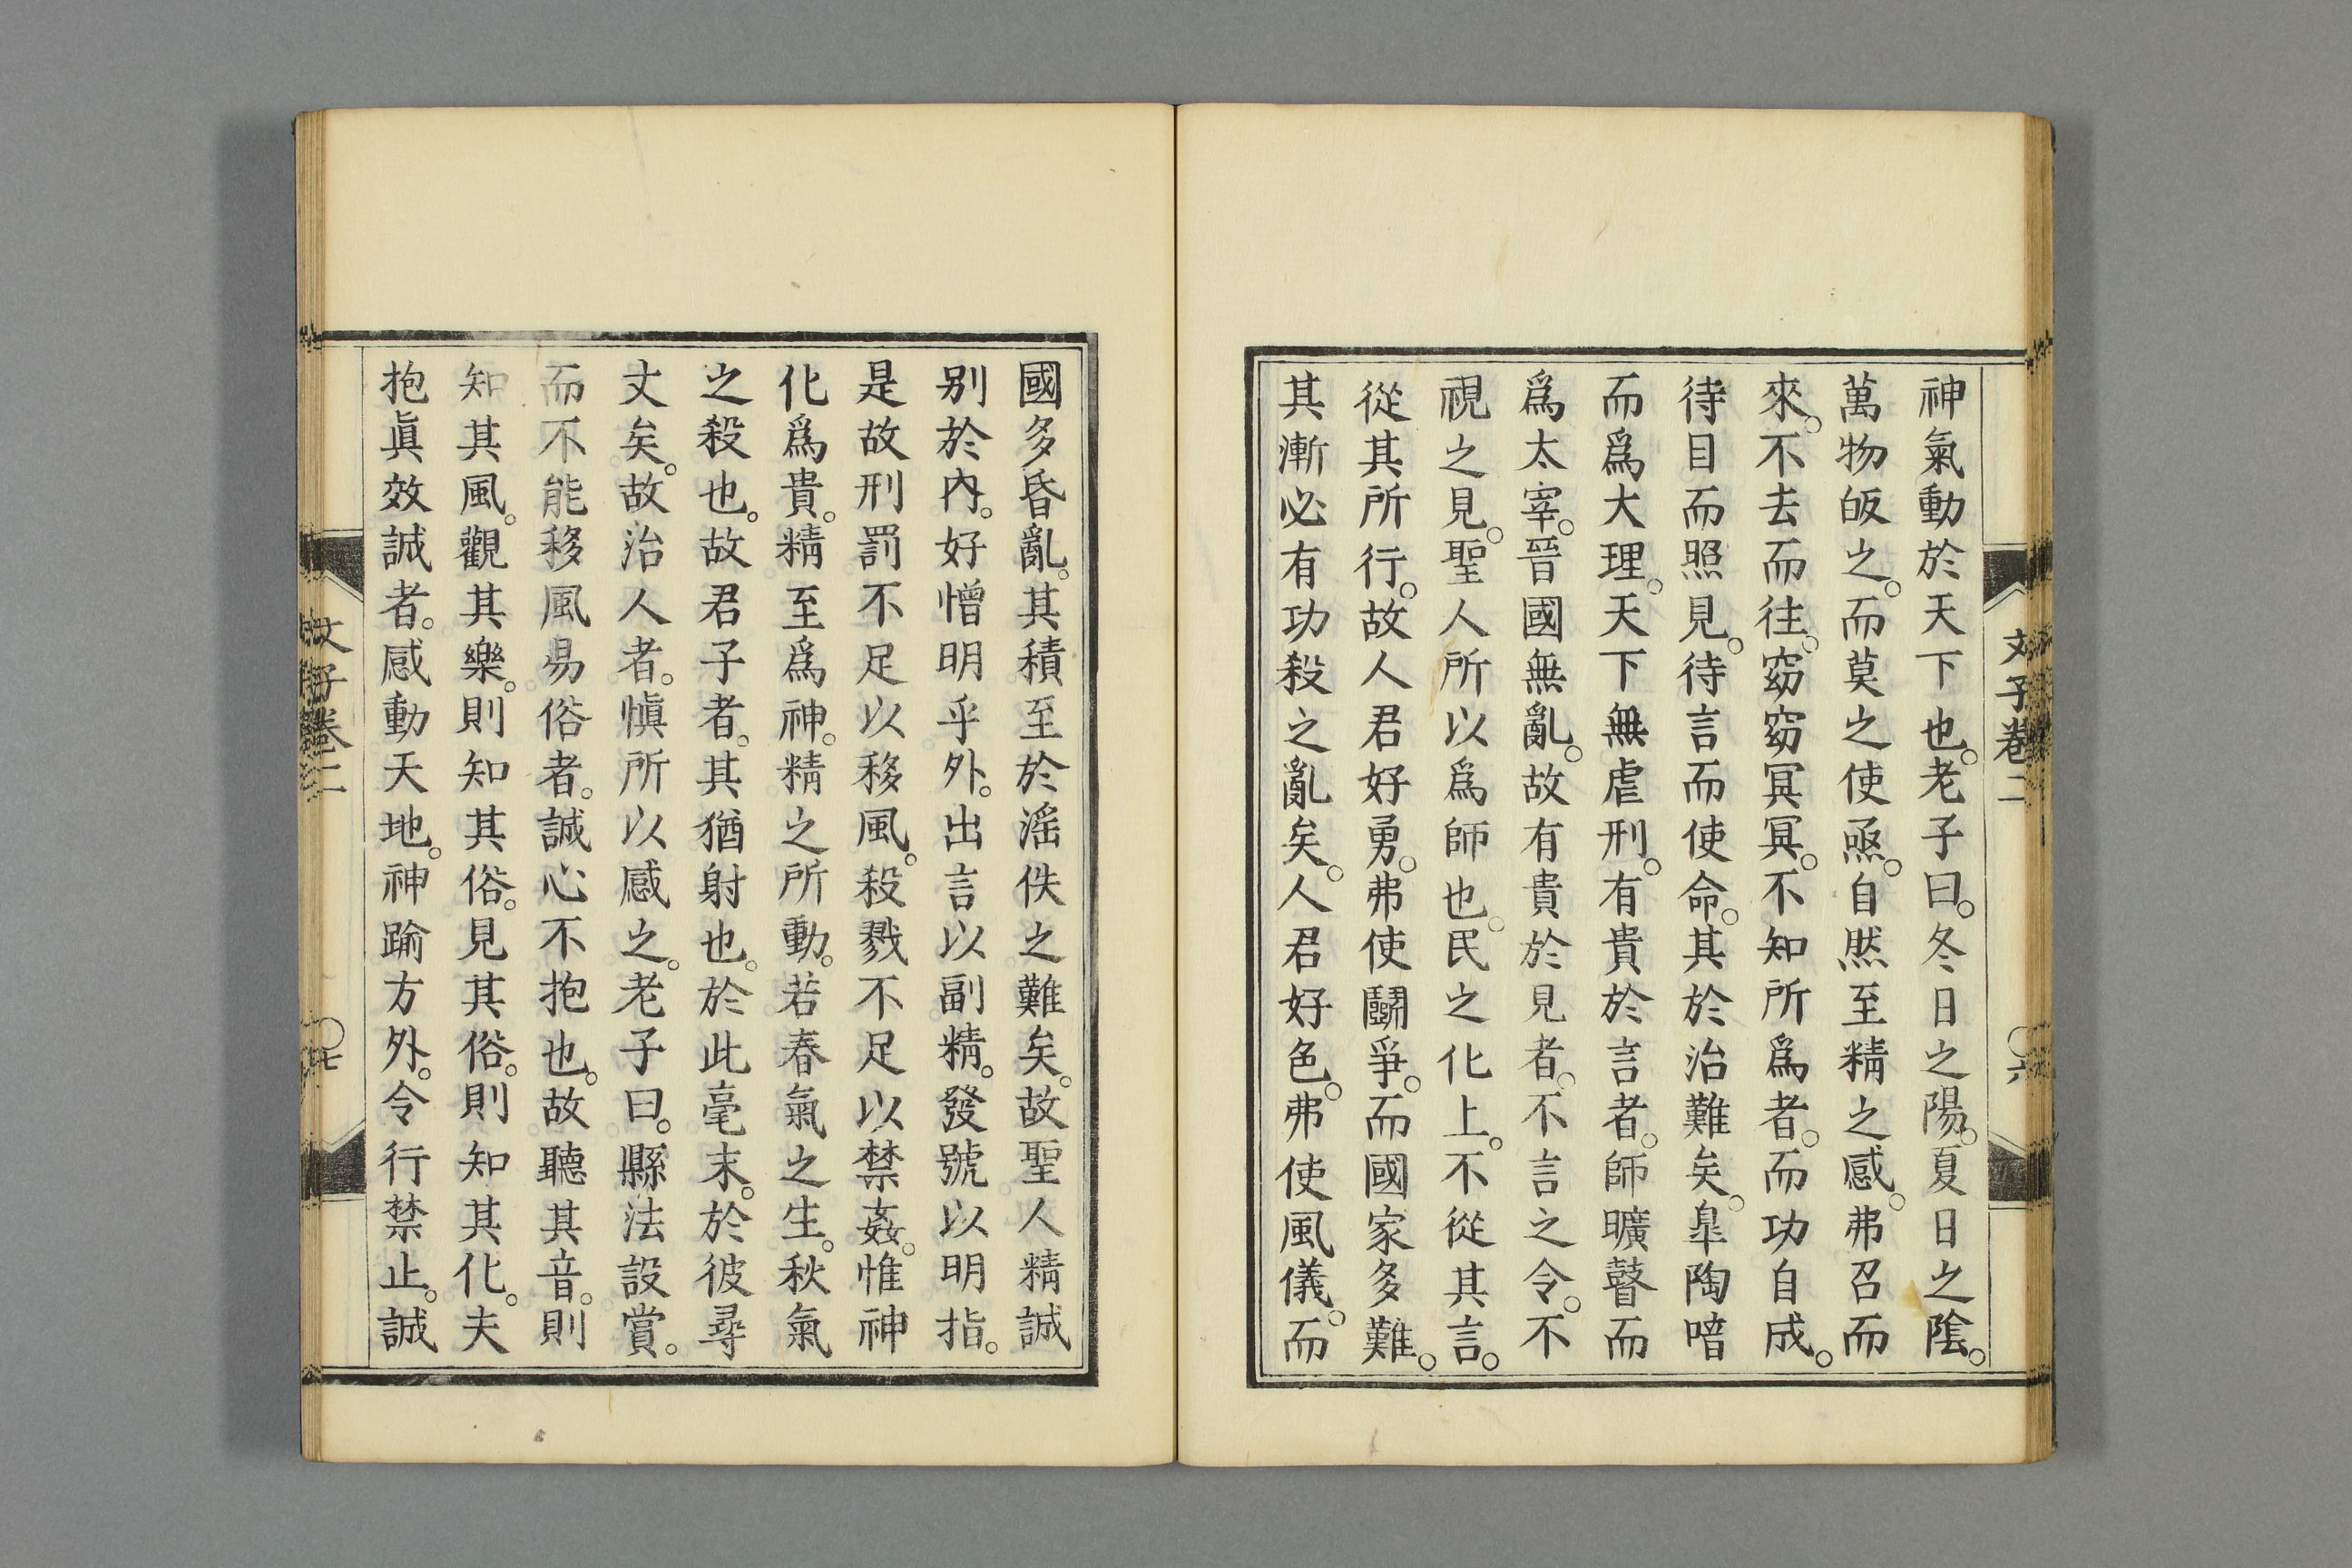 文子卷二
〇六
神氣動於天下也。老子曰。冬日之陽。夏日之陰。
萬物皈之。而莫之使亟。自然至精之感。弗召而
來。不去而往。窈窈冥冥。不知所爲者。而功自成。
待目而照見。待言而使命。其於治難矣。皐陶喑
而爲大理。天下無虐刑。有貴於言者。師曠瞽而
爲太宰。晉國無亂。故有貴於見者。不言之令。不
視之見。聖人所以爲師也。民之化上。不從其言。
從其所行。故人君好勇。弗使鬭爭。而國家多難。
其漸必有功殺之亂矣。人君好色。弗使風儀。而
國多昏亂。其積至於滛佚之難矣。故聖人精誠
别於內。好憎明乎外。出言以副精。發號以明指。
是故刑罰不足以移風。殺戮不足以禁姦。惟神
化爲貴。精至爲神。精之所動。若春氣之生。秋氣
之殺也。故君子者。其猶射也。於此毫末。於彼尋
丈矣。故治人者。愼所以感之。老子曰。縣法設賞。
而不能移風易俗者。誠心不抱也。故聽其音。則
知其風。觀其樂。則知其俗。見其俗。則知其化。夫
抱眞效誠者。感動天地。神踰方外。令行禁止。誠
文子卷二
〇七